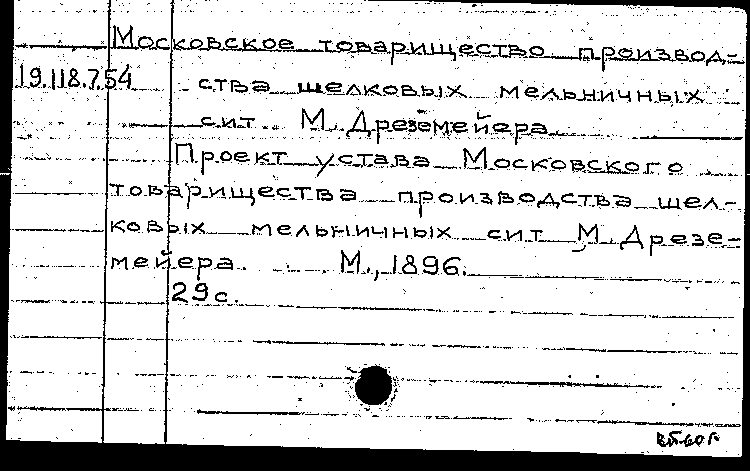 Московское товарищество производ-
19.118.754 ства шелковых мельничных
сит М. Дреземейера
Проект устава Московского
товарищества производства шел-
ковых мельничных сит М. Дрезе-
мейера. М., 1896.
29 с.